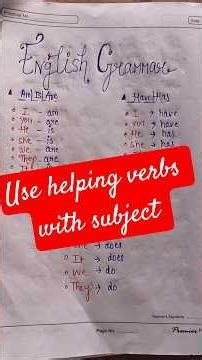 English Grammar
Am/Is/Are
I - am
You - are
He - is
She - is
We - are
They - are
Have/Has
I → have
You → have
He → has
She → has
Use helping verbs
with subject
→ does
It → does
We → do
They → do
Page No.
Premier